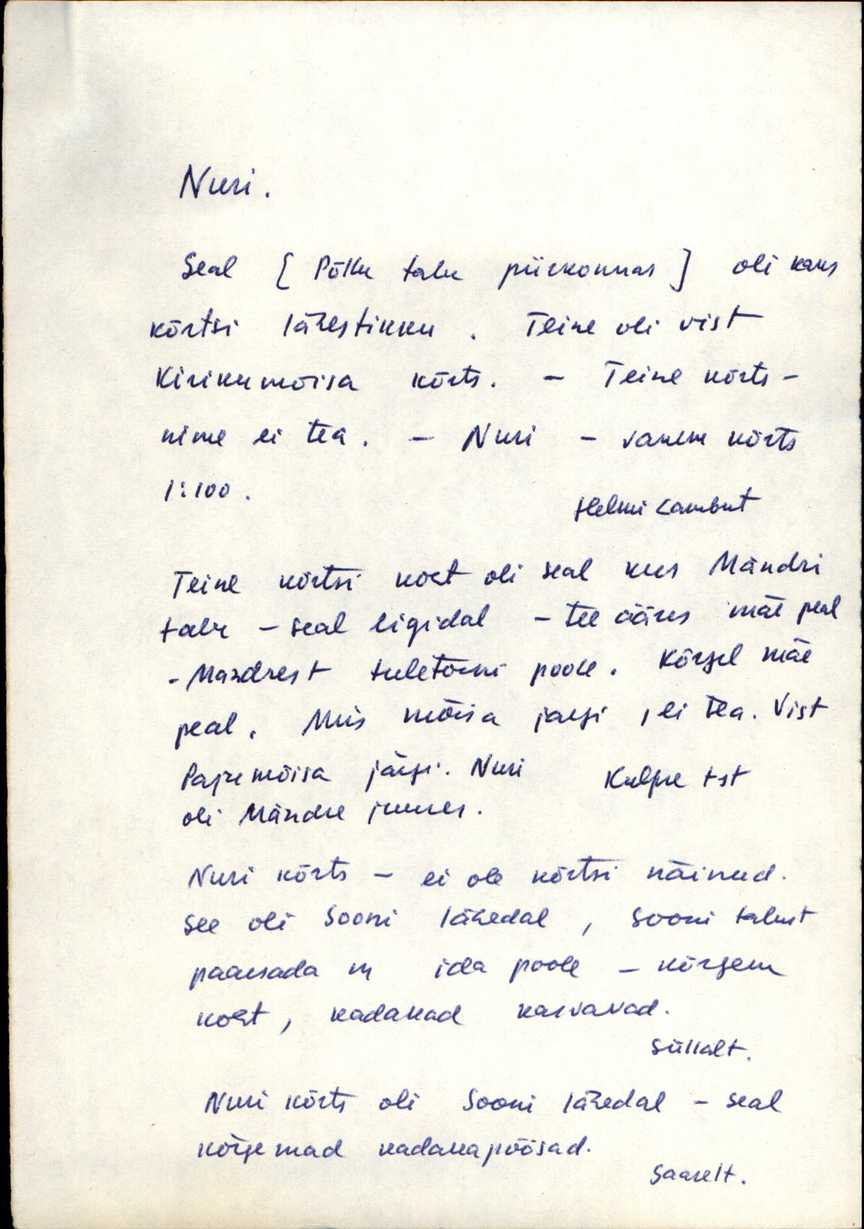 Nuri.
Seal [ Põllu talu piirkonnas ] oli kaks
kõrtsi lähestikku . Teine oli vist
Kirikumõisa kõrts. – Teine kõrts –
nime ei tea . – Nuri – vanem kõrts
1:100 .
Helmi Lambut
Teine kõrtsi koht oli seal kus Mändri
talu – seal ligidal – tee ääres mäe peal
- Mändrest tuletorni poole . Kõrgel mäe
peal . Mis mõisa järgi , ei tea. Vist
Pajumõisa järgi. Nuri
oli Mändre juures .
Kulpre tst
Nuri kõrts – ei ole kõrtsi näinud.
See oli Sooni lähedal , Sooni talust
paarsada m ida poole – kõrgem
koht , kadakad kasvavad.
Süllalt.
Nuri kõrts oli Sooni lähedal – seal
kõrgemad kadakapõõsad.
Saarelt.